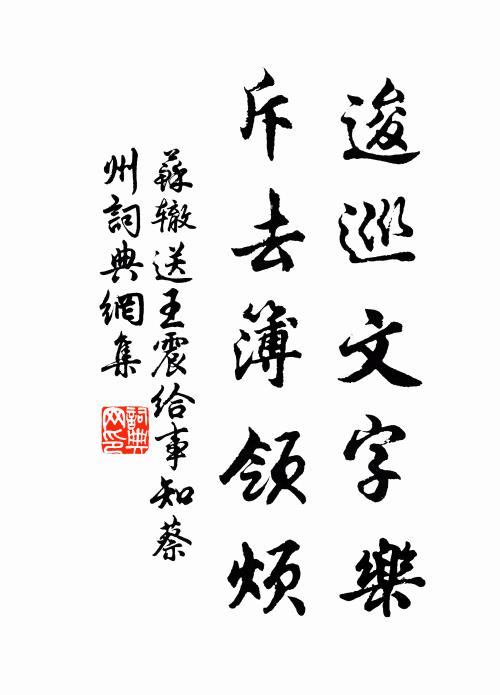 逡巡文字樂
斥去簿領煩
蘇辙送王震给事知蔡
州詞典網集
詞典
网印